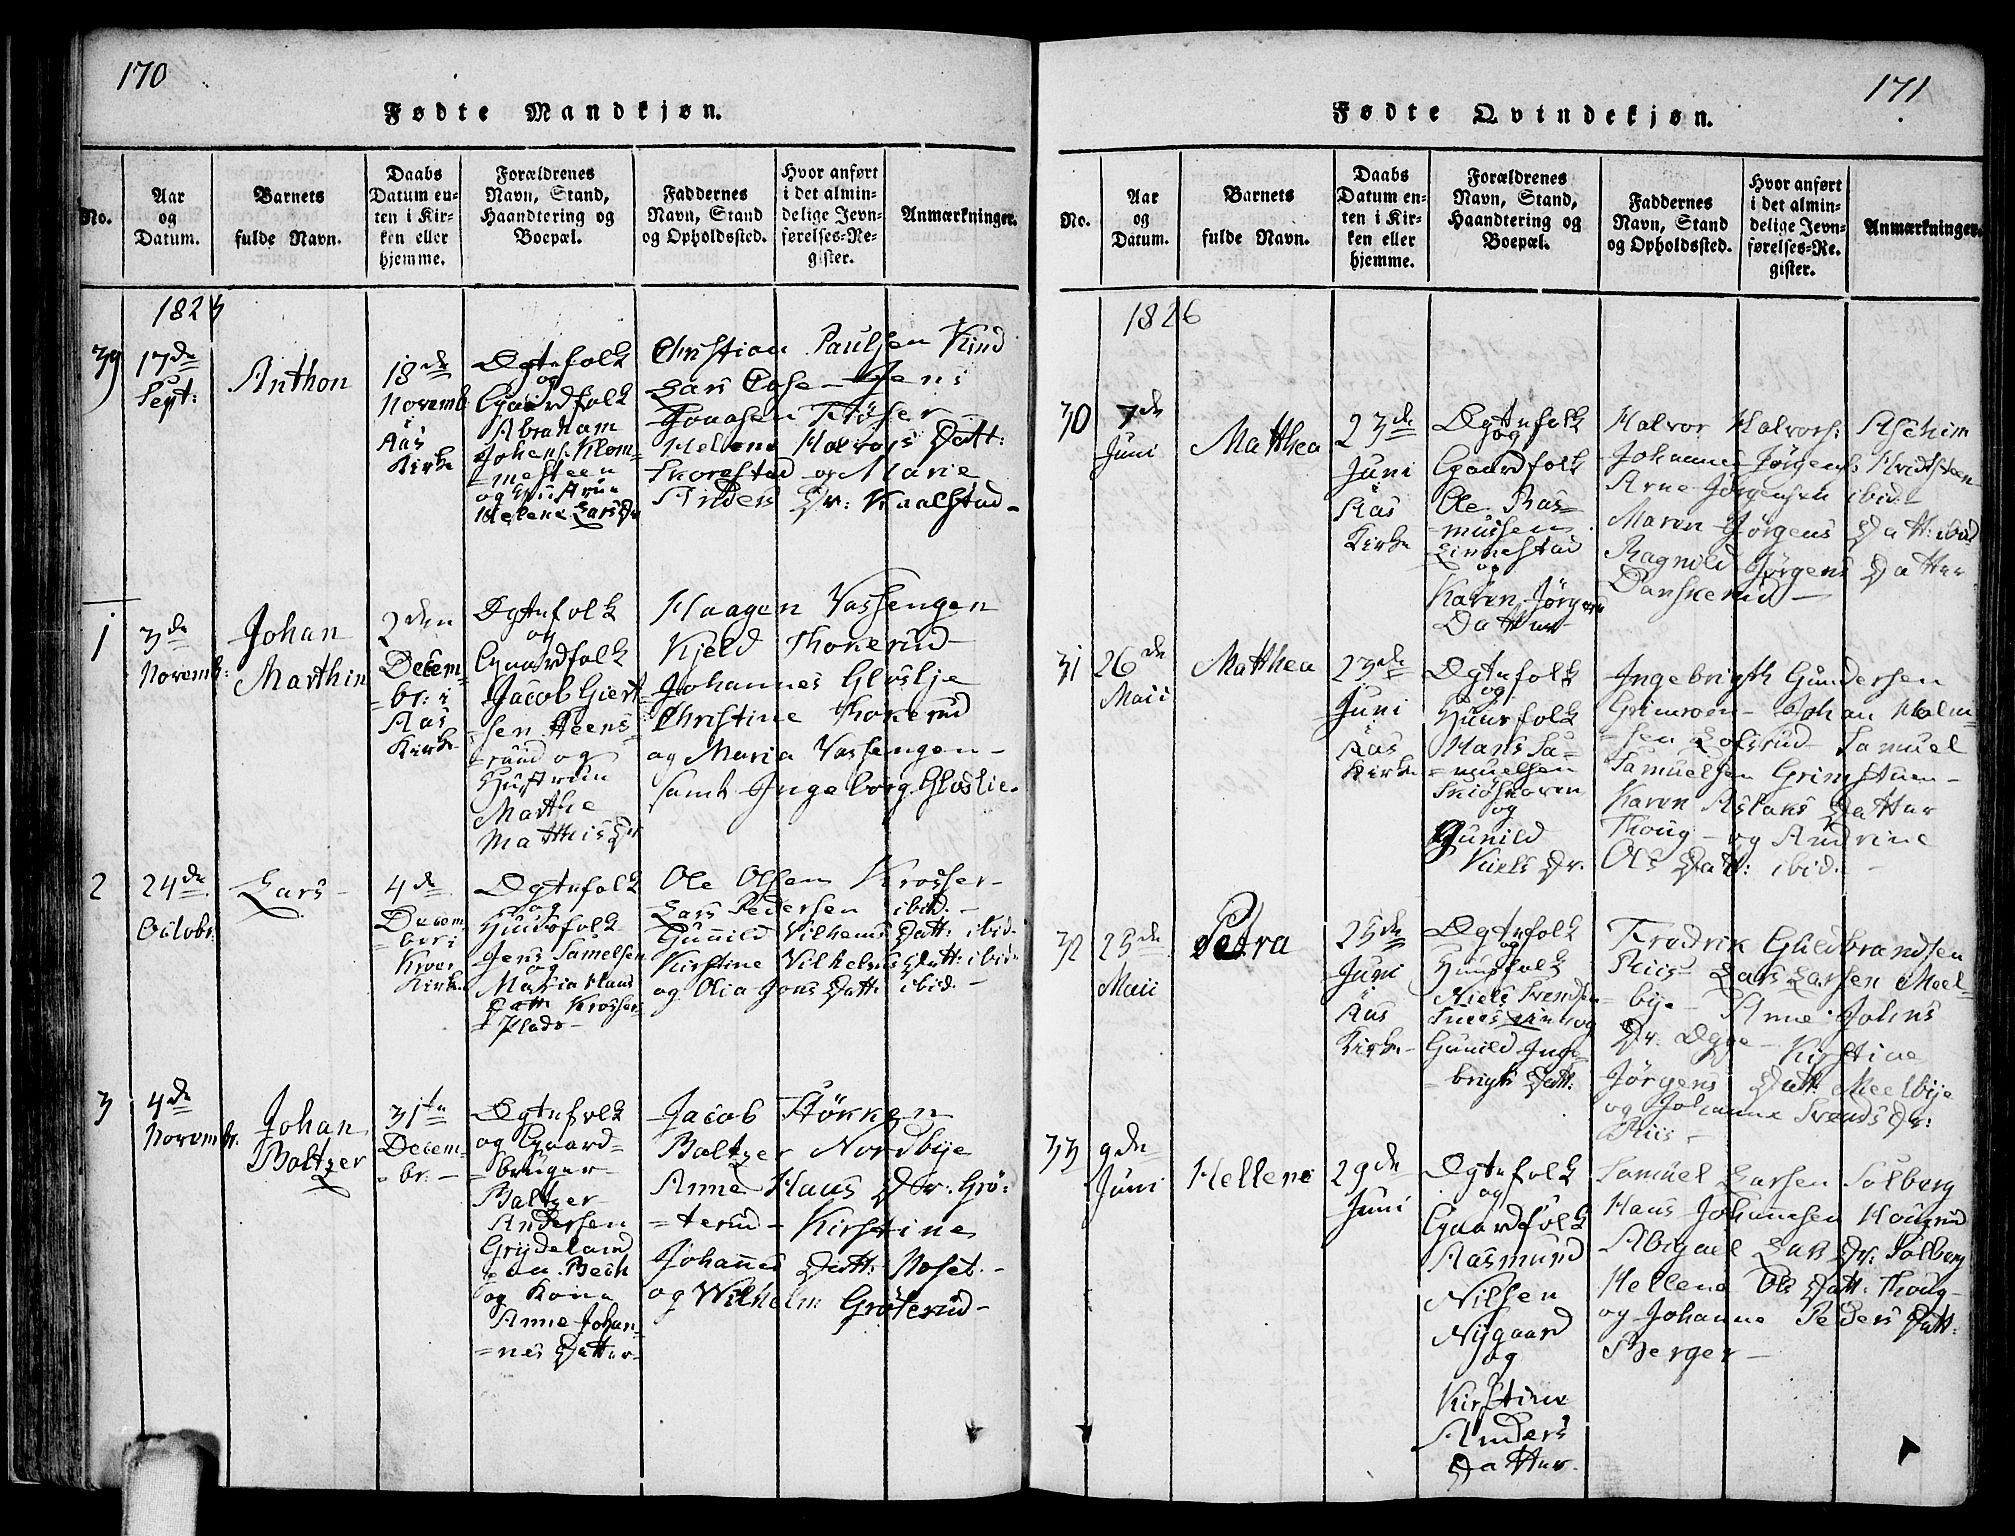 170
Fødte Mandkjøn.
No.
Aar
og
Datum.
Barnets
fulde Navn.
Daabs
Datum en-
ten i Kir-
ken eller
hjemme.
Forældrenes
Navn, Stand,
Haandtering og
Boepæl.
Faddernes
Navn, Stand
og Opholdssted.
Hvor anført
i det almin-
delige Jevn-
førelses-Re-
gister.
Anmærkninger.
39
17de
Sept:
Anthon
18de
Novemb
i
Aas
Kirke
Ægtefolk
og
Gaardfolk
Abraham
Johens. Klom-
mesteen
og Hustrue
Helene Lars Dr
Christian Paulsen Kind
Lars Ose - Jens
Jonasen Trøser
Helene Halvors Datt:
Skorestad og Marie
Anders Dr: Kaalstad -
1
3de
Novemb:
Johan
Marthin
2den
Decem-
br: i
Aas
Kirke
Ægtefolk
og
Gaardfolk
Jacob Giert-
sen Steens-
rund og
Hustruen
Marthe
Matthis Dr
Haagen Vassengen
Kjeld Thokerud
Johannes Gloslje
Christine Thokerud
og Maria Vassengen -
samt Ingeborg Gloslie.
2
24de
Octobr.
Lars -
4de
Decem
ber i
Kroer
Kirke
Ægtefolk
og
Huusfolk
Jens Samelsen
og
Maria Hans
Datt Krosser
Plads -
Ole Olsen Krosser -
Lars Pedersen ibid. -
Gunnild Vilhems Datt: ibid -
Kirstine Vilhelms Datt: ibid -
og Olia Jons Datt: ibid. -
3
4de
Novembr.
Johan
Baltzer
31te
Decem-
br. -
Ægtefolk
og Gaard-
bruger
Baltzer
Andersen
Grydeland
- Bech
og Kone
Anne Johan-
nes Datter -
Jacob Støkken
Baltzer Nordbye
Anne Hans Dr. Grø-
terud - Kirstine
Johannes Datt: Noset. -
og Wilhelm Grøterud -
171
Fødte Qvindekjøn.
No.
Aar
og
Datum.
Barnets
fulde Navn.
Daabs
Datum en-
ten i Kir-
ken eller
hjemme.
Forældrenes
Navn, Stand,
Haandtering og
Boepæl.
Faddernes
Navn, Stand
og Opholdssted.
Hvor anført
i det almin-
delige Jevn-
førelses-Re-
gister.
Anmærkninger.
1826
30
7de
Juni
Matthea
23de
Juni
i
Aas
Kirke
Ægtefolk
og
Gaardfolk
Ole Ras-
mussen
Linnestad
og
Karen Jørgens
Datter
Halvor Halvors: Aschim
Johannes Jørgens: Hvidsteen
Arne Jørgensen ibid. -
Maren Jørgens Datt: ibid
Ragnild Jørgens Datter
Danskerud -
31
26de
Maii
Matthea
23de
Juni
i
Aas
Kirke
Ægtefolk
og
Huusfolk
Hans Sa-
muelsen
Skioskoven
og
Gunild
Niels Dr.
Ingebrigth Gundersen
Grimroen - Johan Halm-
sen Lofsrud Samuel
Samuelsen Grimstuen -
Karen Aslaks Datter
Thoug - og Andrine
Ols Datt: ibid. -
32
25de
Maii
Petra
25de
Juni
i
Aas
Kirke -
Ægtefolk
og
Huusfolk
Niels Svendsen
og
Gunild Inge-
brigts Datt:
Fredrik Guldbrandsen
Riis Lars Larsen Meel-
bye - Anne Johns
Dr. Egge - Kirstine
Jørgens Datt: Meelbye
og Johanne Svends Dr:
Riis -
33
9de
Juni
Hellene
29de
Juni
Ægtefolk
og
Gaardfolk
Rasmund
Nilsen
Nygaard
og
Kirstine
Anders
Datter.
Samuel Larsen Solberg
Hans Johannsen Hougrud
Abigael Lars Dr: Solberg
Hellene Ole Datt: Thoug -
og Johanne Peders Datt:
Berger -